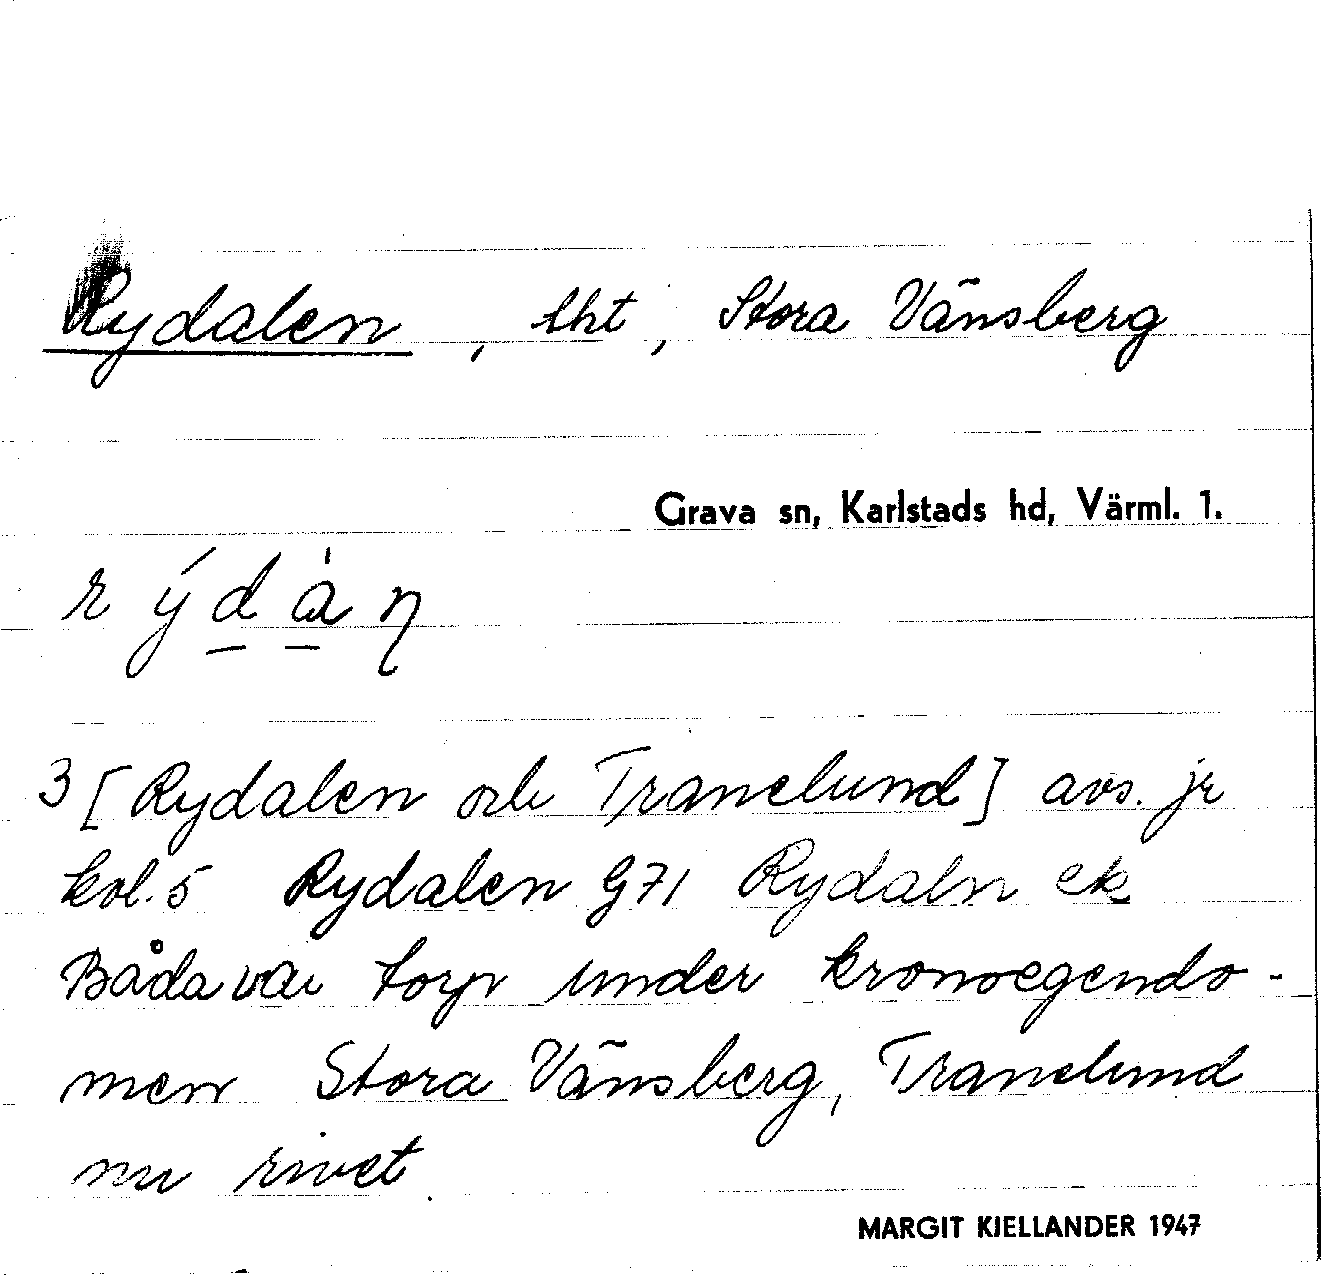 Rydalen, lht, Stora Vänsberg
Grava sn, Karlstads hd, Värml. 1.
rýdàn
3 [Rydalen och Tranelund] avs. jr
kol. 5 Rydalen G71 Rydaln ek
Båda var torp under kronoegendo-
men Stora Vänsberg, Tranelund
nu rivet.
MARGIT KJELLANDER 1947